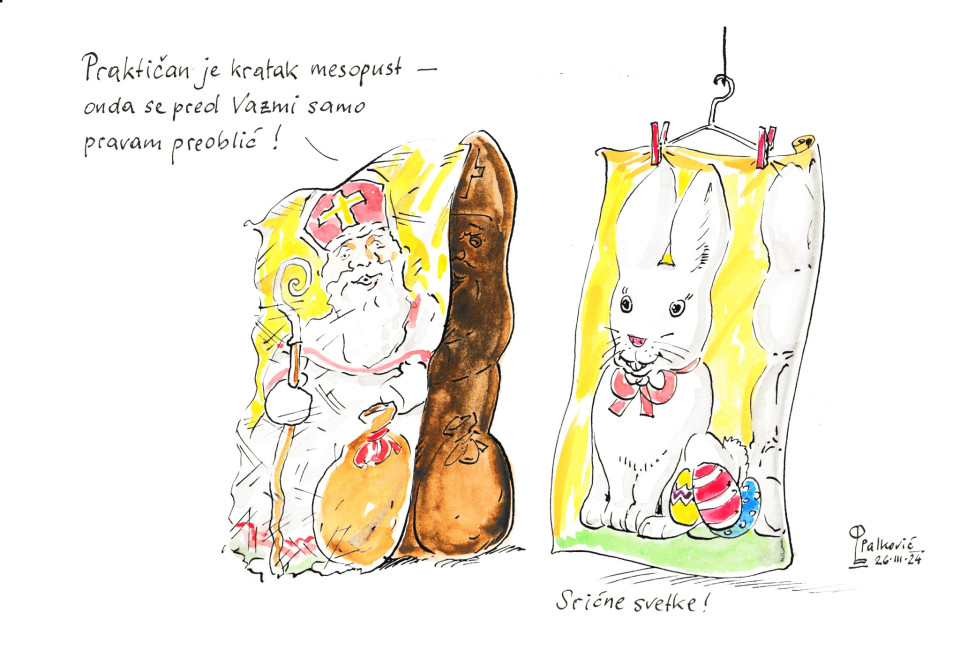 Praktičan je kratak mesopust –
onda se pred Vazmi samo
pravam preoblić!
Srićne svetke!
Palković
26·III·24